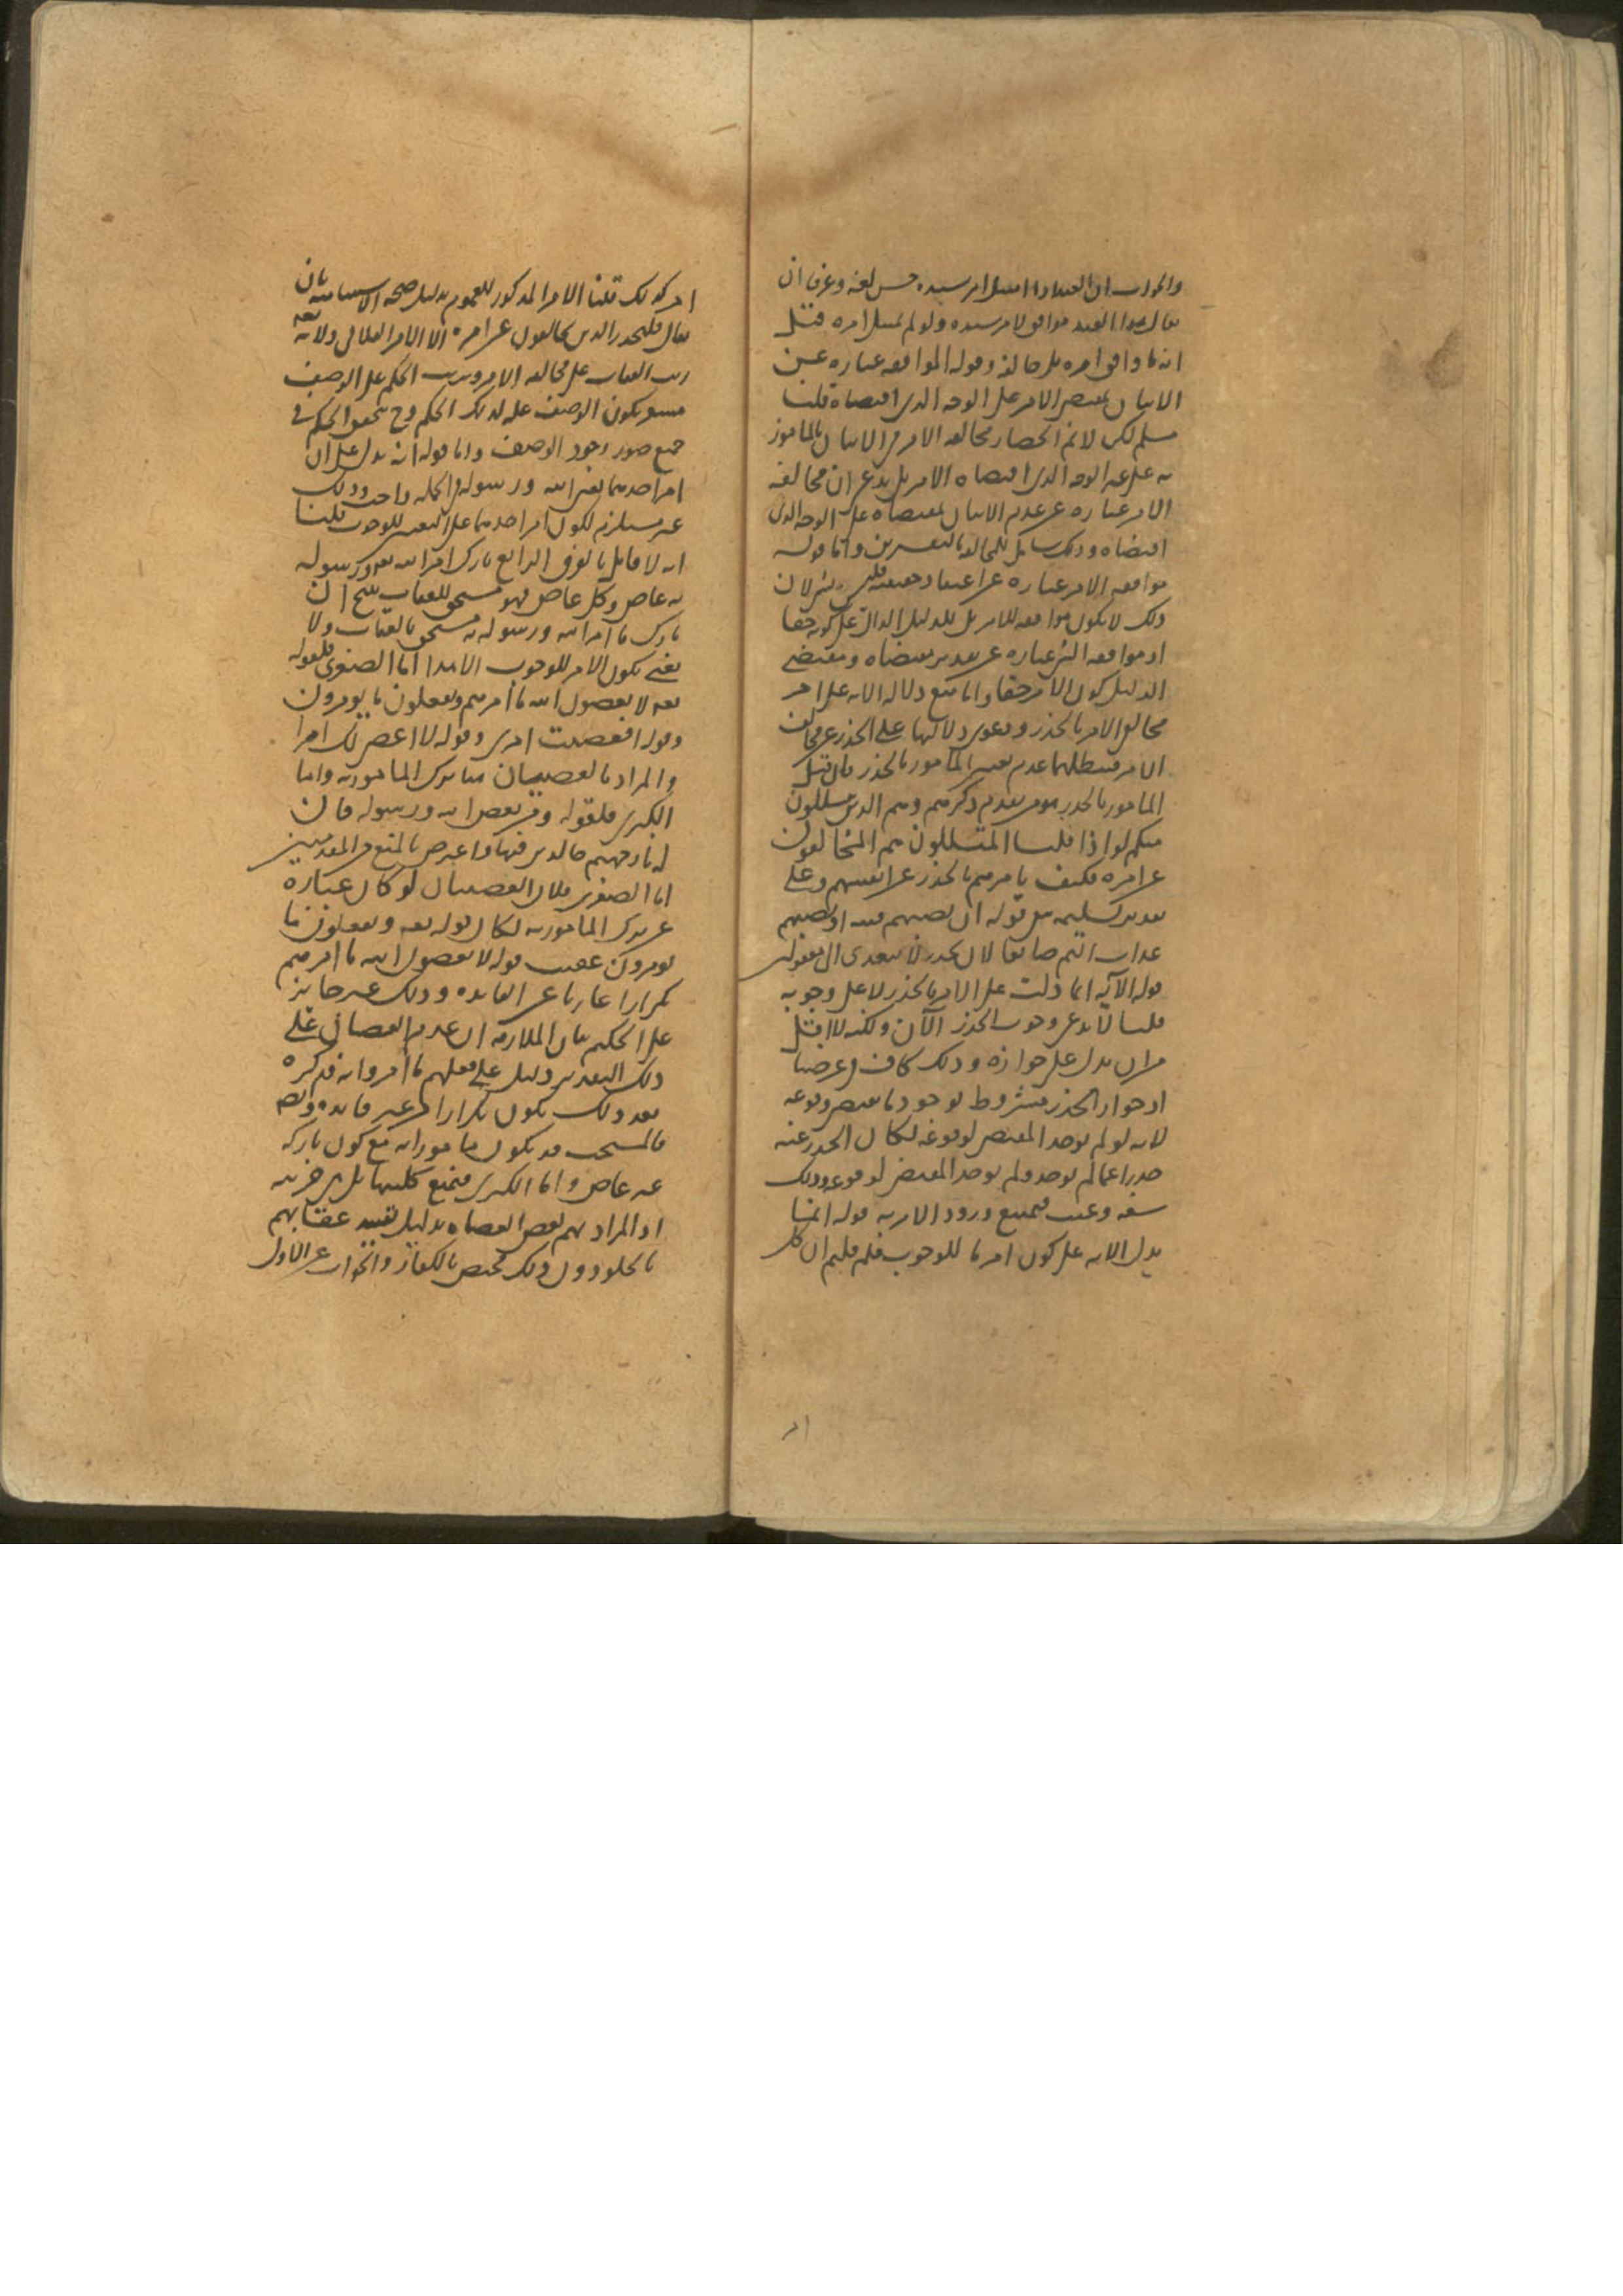 والجواب ان العبد اذا امتثل امر سيده حسن لغة وعرفا ان
يقال هذا العبد موافق لامر سيده ولو لم يمتثل امره قيل
انه ما وافق امره بل خالفه وقوله الموافقه عباره عن
الاتيان بمقتضى الامر على الوجه الذى اقتضاه قلنا
مسلم لكن لانم انحصار مخالفه الامر فى الاتيان بالمامور
به على غير الوجه الذى اقتضاه الامر بل ندعى ان مخالفة
الامر عباره عن عدم الاتيان بمقتضاه على الوجه الذى
اقتضاه وذلك شامل للمخالفه بالتفسيرين واما قوله
موافقه الامر عباره عن اعتقاد حقيقته فليس بشى لان
ذلك لا يكون موافقه للامر بل للدليل الدال على كونه حقا
اذ موافقه الشى عباره عن تقدير مقتضاه ومقتضى
الدليل كون الامر حقا واما منع دلاله الايه على امر
مخالف الامر بالحذر ودعوى دلالتها على الحذر عن مخالف
الامر فيبطلها عدم تعيين المامور بالحذر فان قيل
المامور بالحذر هو من تقدم ذكرهم وهم الذين يتسللون
منكم لواذا قلنا المتسللون هم المخالفون
عن امره فكيف يامرهم بالحذر عن انفسهم وعلى
تقدير تسليمه يبقى قوله ان تصيبهم فتنه او يصيبهم
عذاب اليم ضايعا لان يحذر لا يتعدى الى مفعولين
قوله الآيه انما دلت على الامر بالحذر لا على وجوبه
قلنا لا ندعى وجوب الحذر الآن ولكنه لا اقل
من ان يدل على جوازه وذلك كاف فى غرضنا
اذ جواز الحذر مشروط بوجود ما يقتضى وقوعه
لانه لو لم يوجد المقتضى لوقوعه لكان الحذر عنه
حذرا عما لم يوجد ولم يوجد المقتضى لوقوعه وذلك
سفه وعبث فيمتنع ورود الامر به قوله انما
يدل الايه على كون امر ما للوجوب فلم قلتم ان كل
امر كذلك قلنا الامر المذكور للعموم بدليل صحه الاستثنا منه بان
يقال فليحذر الذين يخالفون عن امره الا الامر الفلانى ولانه تعه
رتب العقاب على مخالفه الامر وترتيب الحكم على الوصف
مشعر بكون الوصف عله لذلك الحكم وح يتحقق الحكم فى
جميع صور وجود الوصف واما قوله انه يدل على ان
امر احدهما يعنى الله ورسوله فى الجمله واحد وذلك
غير مستلزم لكون امر احدهما على التعيين للوجوب قلنا
انه لا قايل بالفرق الرابع تارك امر الله تعه ورسوله
به عاص وكل عاص فهو مستحق للعقاب ينتج ان
تارك ما امر الله ورسوله به مستحق بالعقاب ولا
نعنى بكون الامر للوجوب الا هذا اما الصغرى فلقوله
تعه لا يعصون الله ما امرهم ويفعلون ما يومرون
وقوله افعصيت امرى وقوله لا اعصى لك امرا
والمراد بالعصيان هنا ترك المامور به واما
الكبرى فلقوله ومن يعص الله ورسوله فان
له نار جهنم خالدين فيها واعترض بالمنع من المقدمتين
اما الصغرى فلان العصيان لو كان عباره
عن ترك المامور به لكان قوله تعه ويفعلون ما
يومرون عقيب قوله لا يعصون الله ما امرهم
تكرارا عاريا عن الفايده وذلك غير جايز
على الحكيم بيان الملازمه ان عدم العصيان على
ذلك التقدير دليل على فعلهم ما امروا به فذكره
بعد ذلك يكون تكرارا من غير فايده وايضا
فالمستحب قد يكون مامورا به مع كون تاركه
غير عاص واما الكبرى فنمنع كليتها بل هى جزييه
اذ المراد بهم بعض العصاه بدليل تقييد عقابهم
بالخلود وان ذلك مختص بالكفار والجواب عن الاول